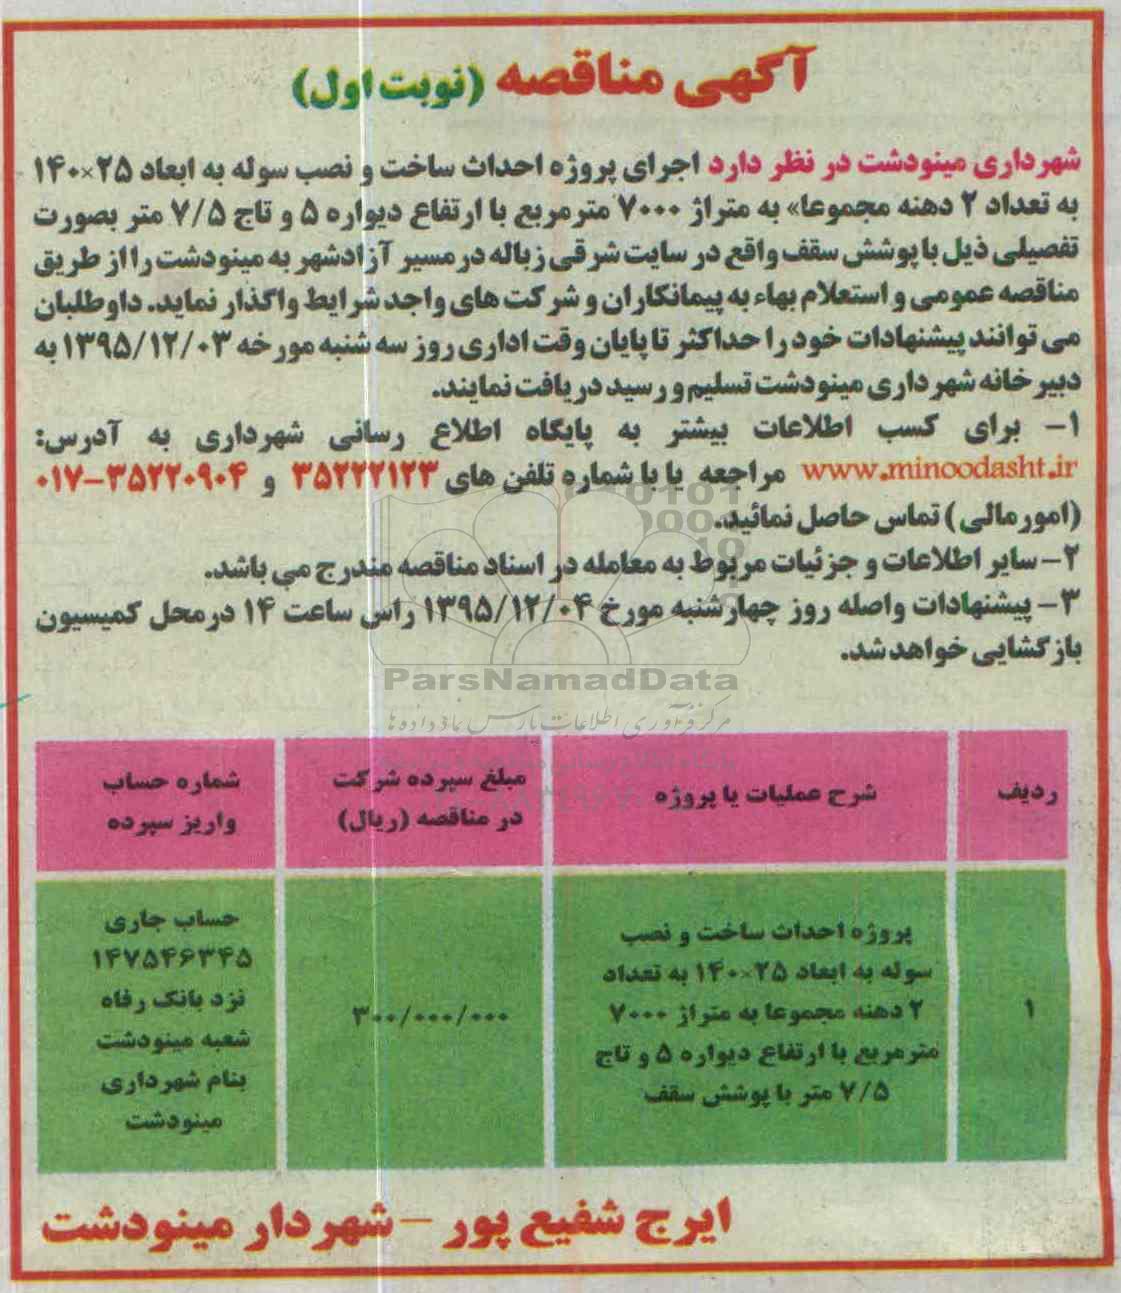 آگهی مناقصه (نوبت اول)
شهرداری مینودشت در نظر دارد اجرای پروژه احداث ساخت و نصب سوله به ابعاد ۲۵×۱۴۰
به تعداد ۲ دهنه مجموعا» به متراژ ۷۰۰۰ مترمربع با ارتفاع دیواره ۵ و تاج ۷/۵ متر بصورت
تفصیلی ذیل با پوشش سقف واقع در سایت شرقی زباله در مسیر آزادشهر به مینودشت را از طریق
مناقصه عمومی و استعلام بهاء به پیمانکاران و شرکت های واجد شرایط واگذار نماید. داوطلبان
می توانند پیشنهادات خود را حداکثر تا پایان وقت اداری روز سه شنبه مورخه ۱۳۹۵/۱۲/۰۳ به
دبیرخانه شهرداری مینودشت تسلیم و رسید دریافت نمایند.
۱- برای کسب اطلاعات بیشتر به پایگاه اطلاع رسانی شهرداری به آدرس:
www.minoodasht.ir مراجعه یا با شماره تلفن های ۳۵۲۲۲۱۲۳ و ۳۵۲۲۰۹۰۴-۰۱۷
(امور مالی) تماس حاصل نمائید.
۲- سایر اطلاعات و جزئیات مربوط به معامله در اسناد مناقصه مندرج می باشد.
۳- پیشنهادات واصله روز چهارشنبه مورخ ۱۳۹۵/۱۲/۰۴ راس ساعت ۱۴ در محل کمیسیون
بازگشایی خواهد شد.
ParsNamadData
مرکز فرآوری اطلاعات پارس نماد داده ها
ردیف
شرح عملیات یا پروژه
مبلغ سپرده شرکت
در مناقصه (ریال)
شماره حساب
واریز سپرده
۱
پروژه احداث ساخت و نصب
سوله به ابعاد ۲۵×۱۴۰ به تعداد
۲ دهنه مجموعا به متراژ ۷۰۰۰
مترمربع با ارتفاع دیواره ۵ و تاج
۷/۵ متر با پوشش سقف
۳۰۰/۰۰۰/۰۰۰
حساب جاری
۱۴۷۵۴۶۳۴۵
نزد بانک رفاه
شعبه مینودشت
بنام شهرداری
مینودشت
ایرج شفیع پور - شهردار مینودشت